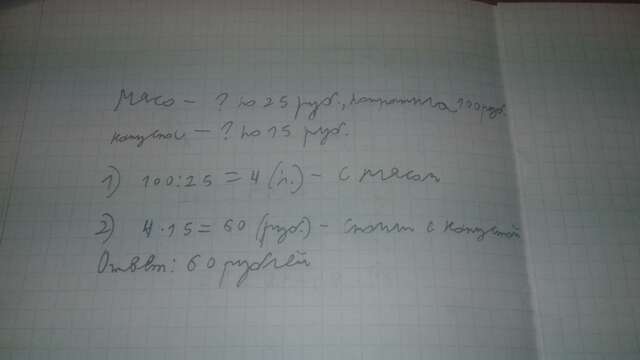 Мясо – ? по 25 руб., потратила 100 руб.
капустой – ? по 15 руб.
1) 100:25 = 4 (п.) – с мясом
2) 4·15 = 60 (руб.) – стоят с капустой
Ответ: 60 рублей